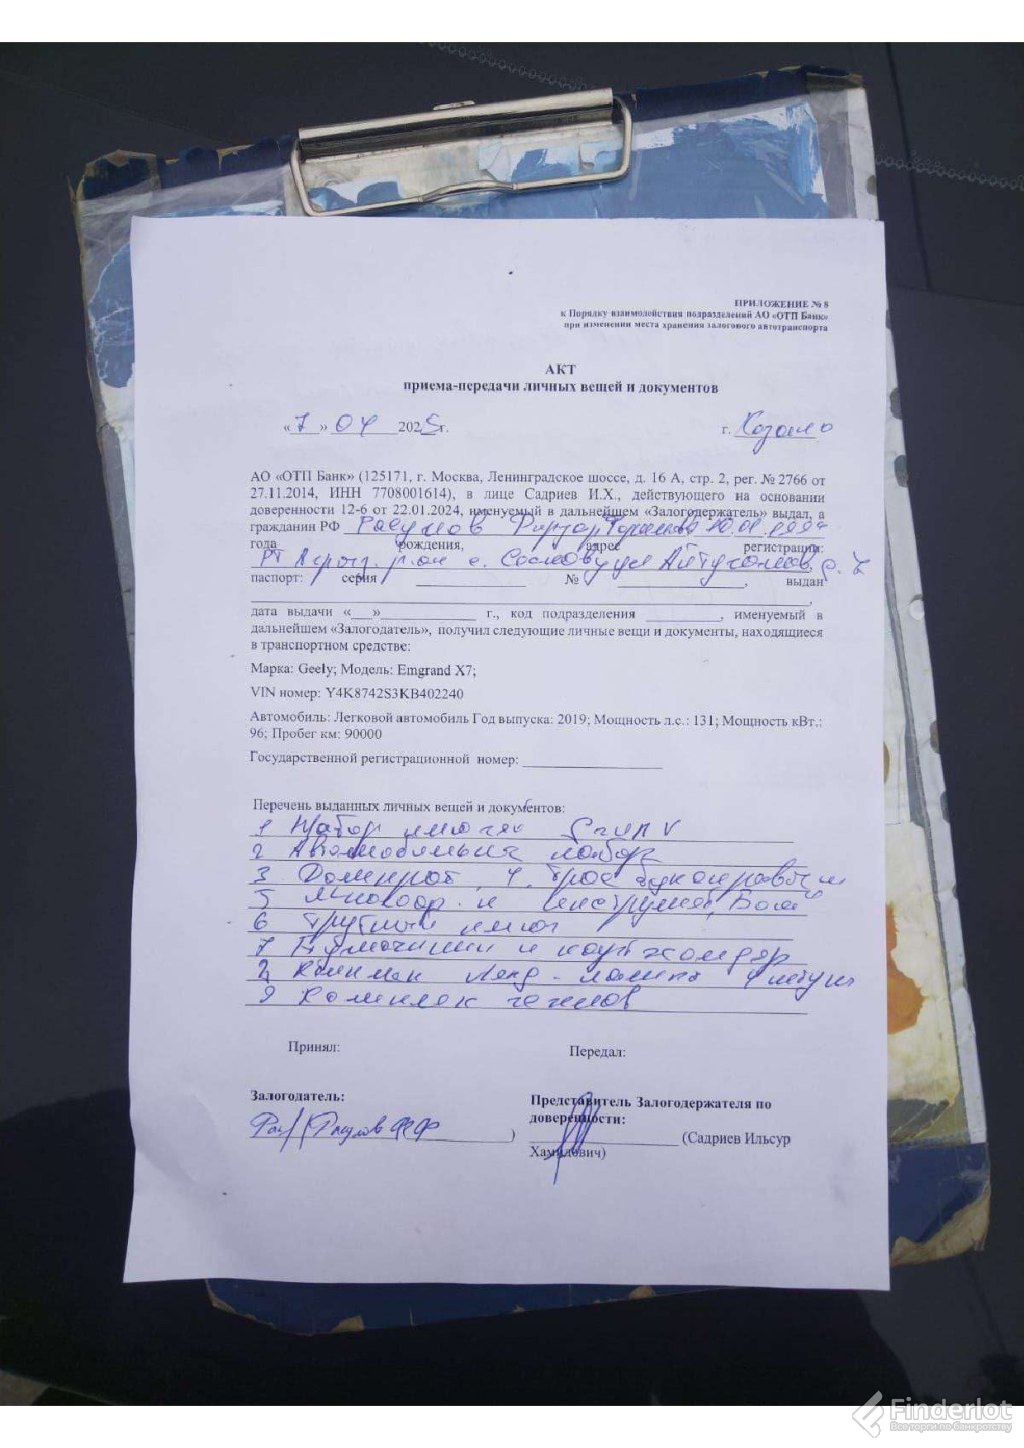 ПРИЛОЖЕНИЕ № 8
к Порядку взаимодействия подразделений АО «ОТП Банк»
при изменении места хранения залогового автотранспорта
АКТ
приема-передачи личных вещей и документов
«7» 04 2025г.
г. Казань
АО «ОТП Банк» (125171, г. Москва, Ленинградское шоссе, д. 16 А, стр. 2, рег. № 2766 от
27.11.2014, ИНН 7708001614), в лице Садриев И.Х., действующего на основании
доверенности 12-6 от 22.01.2024, именуемый в дальнейшем «Залогодержатель» выдал, а
гражданин РФ
года рождения, адрес регистрации:
РТ с.
паспорт: серия № , выдан
,
дата выдачи «__» г., код подразделения , именуемый в
дальнейшем «Залогодатель», получил следующие личные вещи и документы, находящиеся
в транспортном средстве:
Марка: Geely; Модель: Emgrand X7;
VIN номер: Y4K8742S3KB402240
Автомобиль: Легковой автомобиль Год выпуска: 2019; Мощность л.с.: 131; Мощность кВт.:
96; Пробег км: 90000
Государственной регистрационной номер:
Перечень выданных личных вещей и документов:
1 Набор
2 Автомобильная
3 Домкрат 4 Трос
5 и
6
7 и
8
9 чехлов
Принял:
Передал:
Залогодатель:
Представитель Залогодержателя по
доверенности:
)
(Садриев Ильсур
Хамидович)
Finderlot
Все торги по банкротству